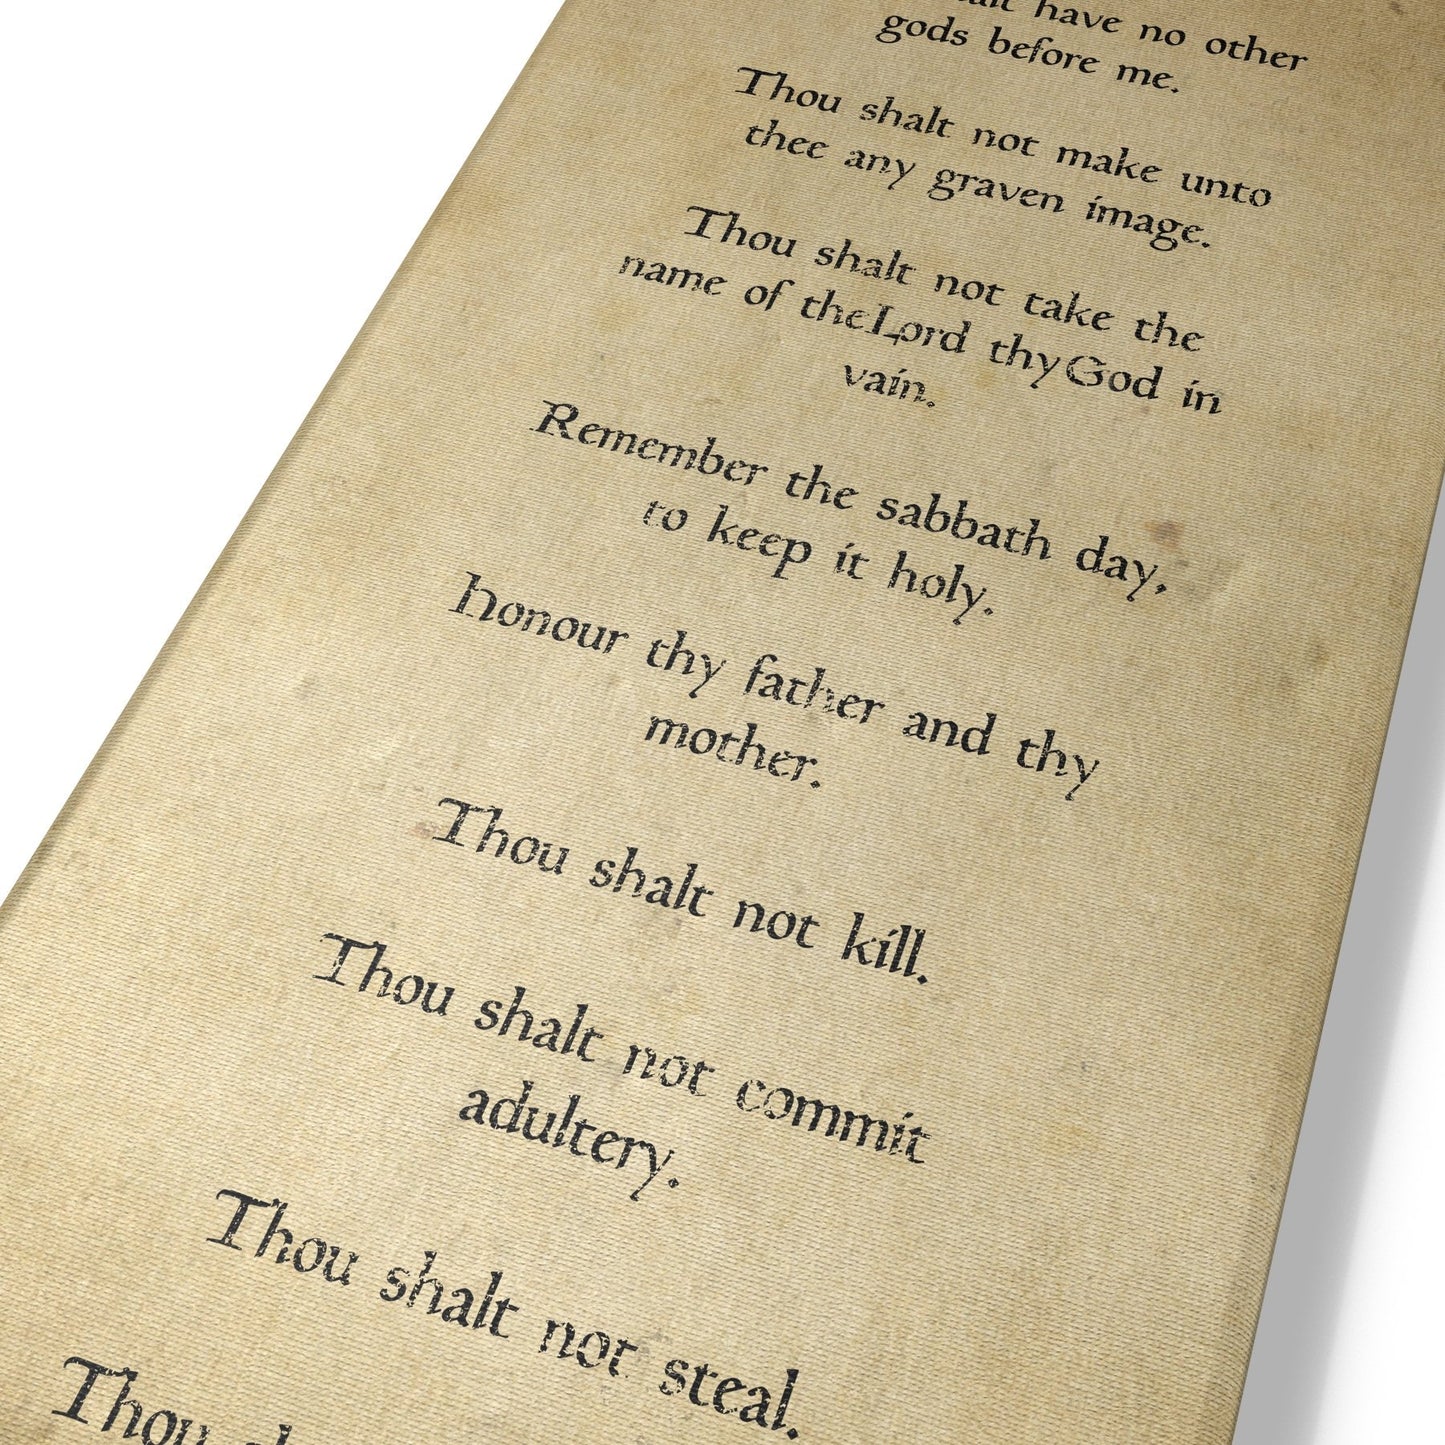 have no other
gods before me.
Thou shalt not make unto
thee any graven image.
Thou shalt not take the
name of theLord thyGod in
vain.
Remember the sabbath day,
to keep it holy.
Honour thy father and thy
mother.
Thou shalt not kill.
Thou shalt not commit
adultery.
Thou shalt not steal.
Thou